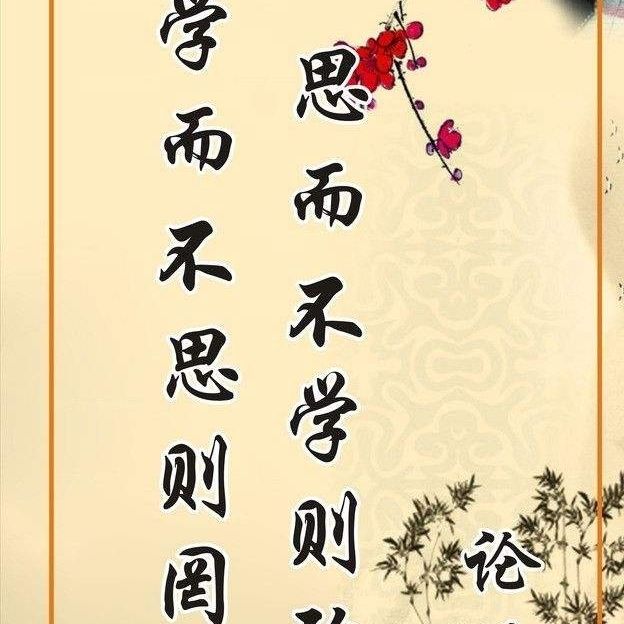 学而不思则罔
思而不学则
论